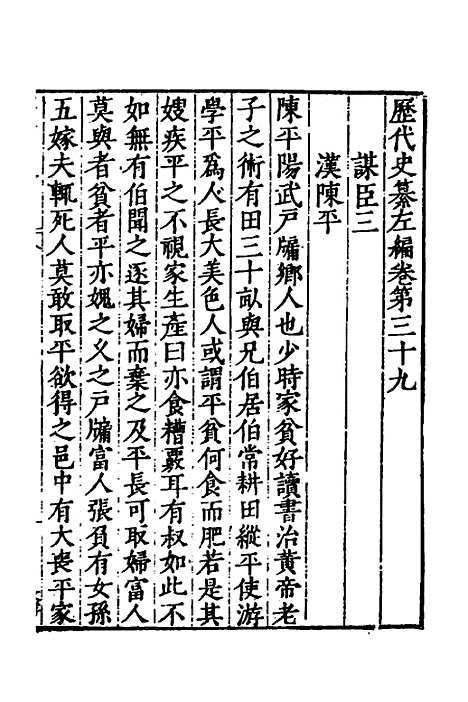 歷代史纂左編卷第三十九
謀臣三
漢陳平
陳平陽武戶牖鄉人也少時家貧好讀書治黃帝老
子之術有田三十畝與兄伯居伯常耕田縱平使游
學平爲人長大美色人或謂平貧何食而肥若是其
嫂疾平之不視家生產曰亦食糟覈耳有叔如此不
如無有伯聞之逐其婦而棄之及平長可取婦富人
莫與者貧者平亦媿之久之戶牖富人張負有女孫
五嫁夫輒死人莫敢取平欲得之邑中有大喪平家